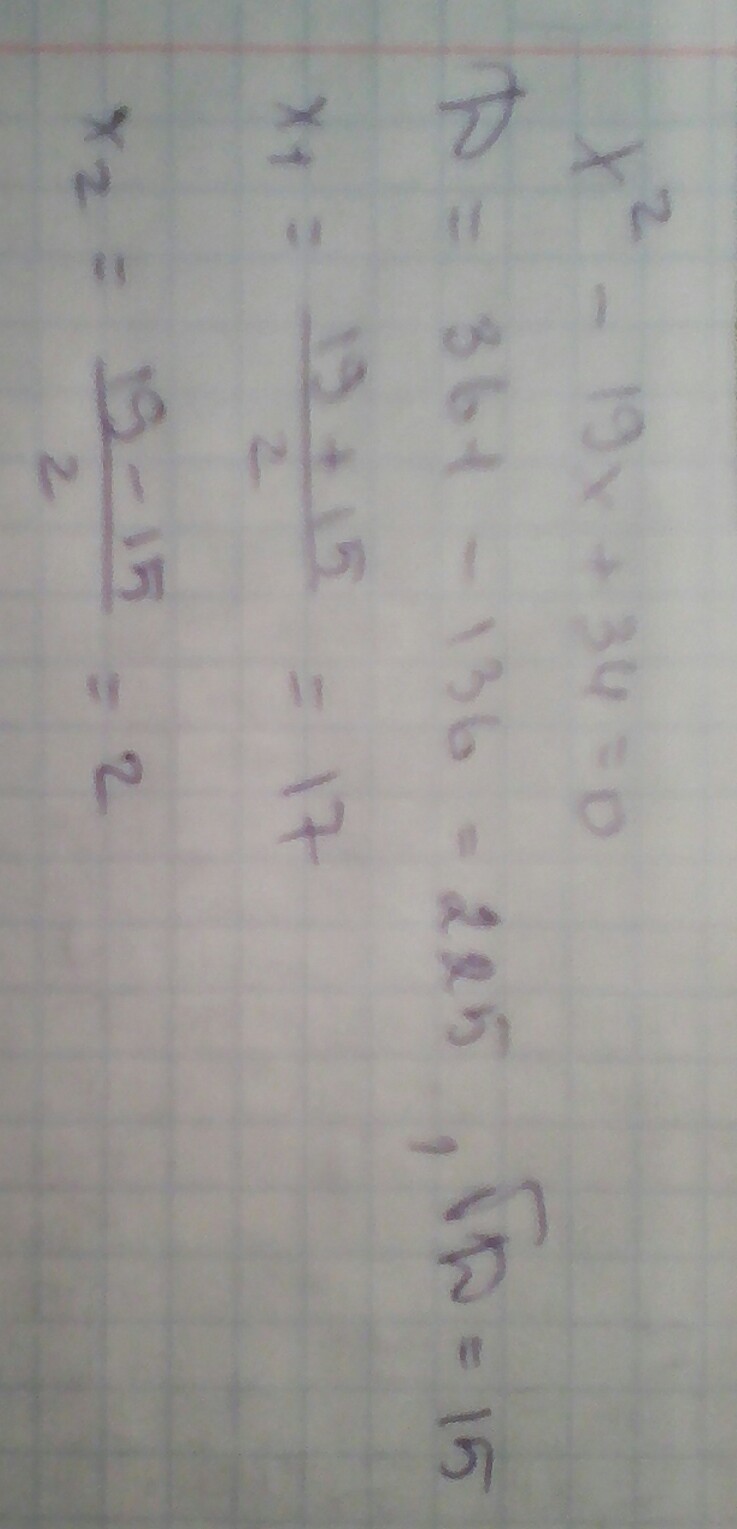 x² - 19x + 34 = 0
D = 361 - 136 = 225, √D = 15
x₁ = (19 + 15)/2 = 17
x₂ = (19 - 15)/2 = 2